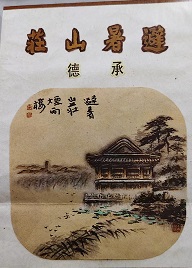 避暑山莊
承德
避暑
山莊
煙雨
樓